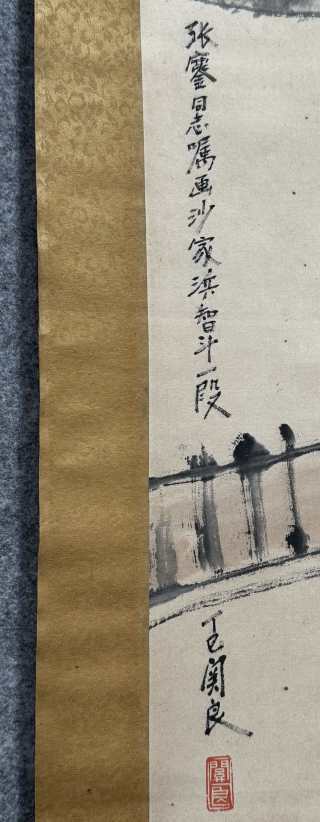 张鏖同志嘱画沙家浜智斗一段
丁巳关良
關良